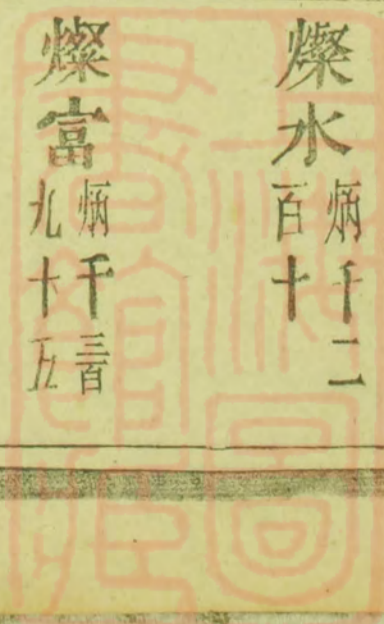 燦水
炳千二
百十
燦富
炳千三百
九十五